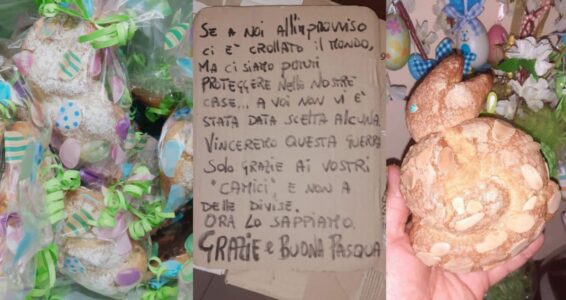 SE A NOI All'improvviso
CI E' CROLLATO IL MONDO,
MA CI SIAMO POTUTI
PROTEGGERE NELLE NOSTRE
CASE... A VOI NON VI È
STATA DATA SCELTA ALCUNA.
VINCEREMO QUESTA GUERRA
SOLO GRAZIE AI VOSTRI
"CAMICI", E NON A
DELLE DIVISE.
ORA LO SAPPIAMO.
GRAZIE E BUONA PASQUA